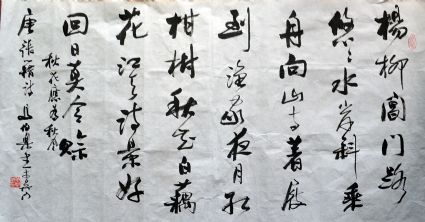 楊柳閶門路
悠〻水岸斜乘
舟向山寺著屐
到漁家夜月紅
柑樹秋花白藕
花江天詩景好
回日莫令賒
秋花應為秋風
唐張籍詩